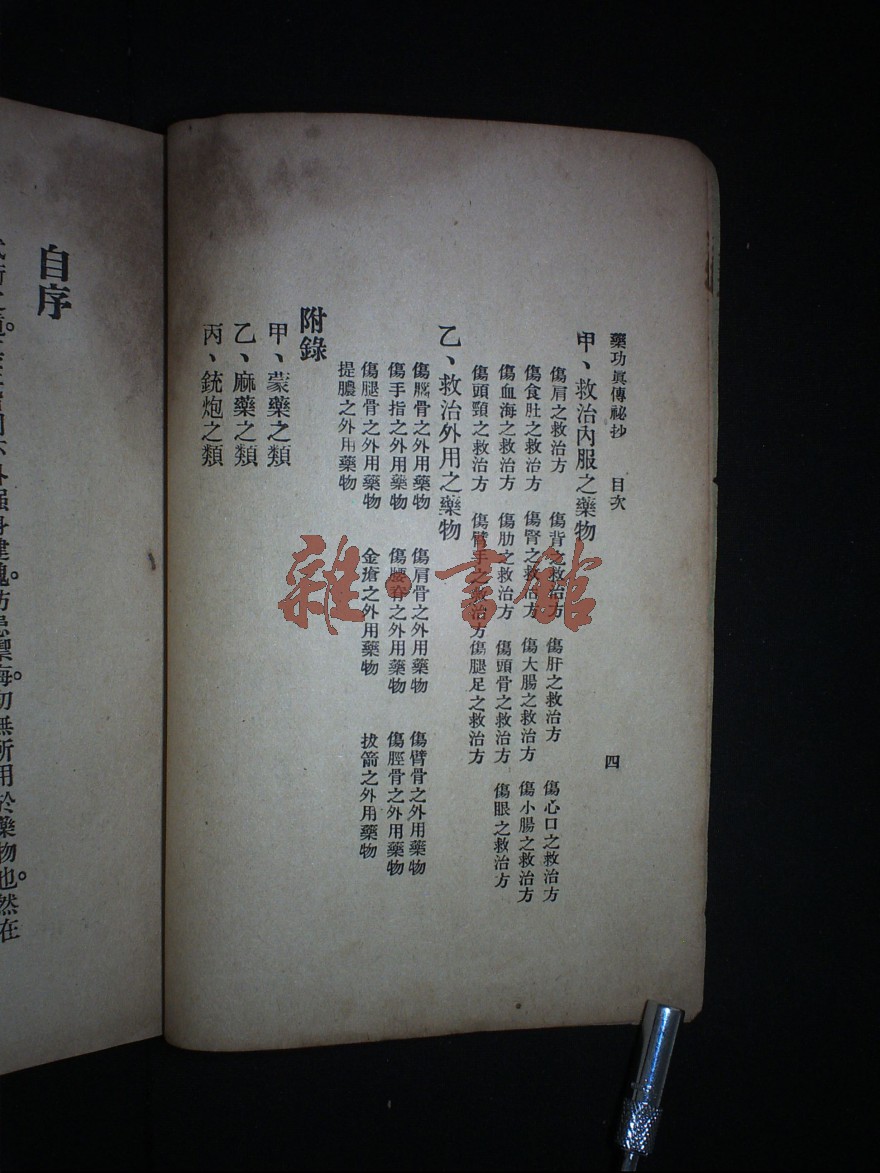 藥功眞傳祕抄 目次 四
甲、救治內服之藥物
傷肩之救治方 傷背之救治方 傷肝之救治方 傷心口之救治方
傷食肚之救治方 傷腎之救治方 傷大腸之救治方 傷小腸之救治方
傷血海之救治方 傷肋之救治方 傷頭骨之救治方 傷眼之救治方
傷頭頸之救治方 傷臂手之救治方 傷腿足之救治方
乙、救治外用之藥物
傷腦骨之外用藥物 傷肩骨之外用藥物 傷臂骨之外用藥物
傷手指之外用藥物 傷腰脊之外用藥物 傷脛骨之外用藥物
傷腿骨之外用藥物 金瘡之外用藥物 拔箭之外用藥物
提膿之外用藥物
附錄
甲、蒙藥之類
乙、麻藥之類
丙、銃炮之類
自序
外强身建魄。防患禦侮。初無所用於藥物也。然在
雜·書館